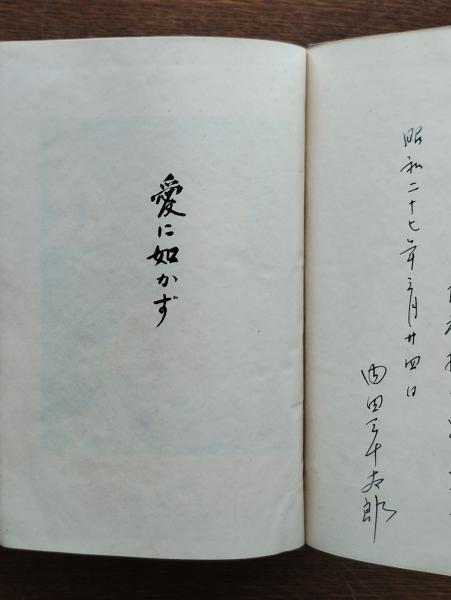 昭和二十七年三月廿四日
内田三千太郎
愛に如かず